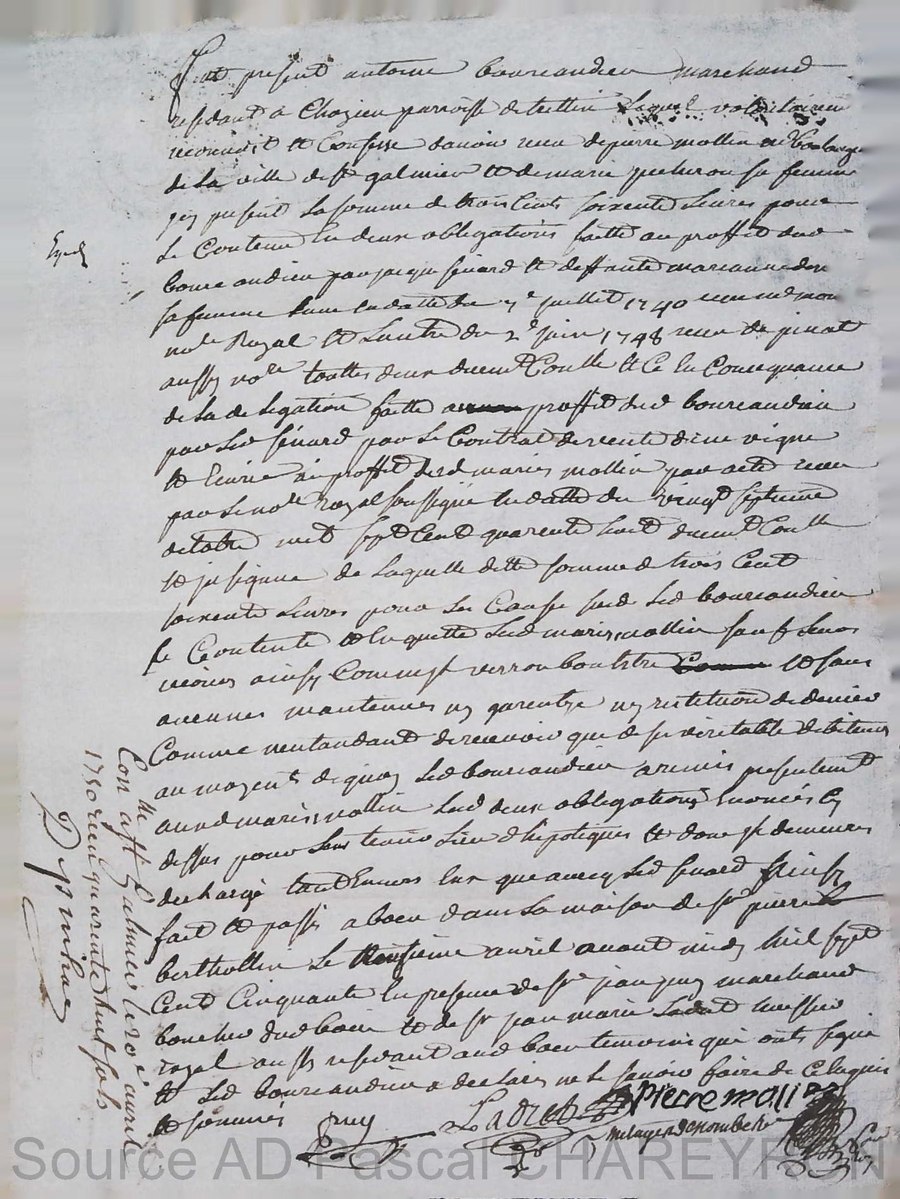 fut présent antoine bourcandieu marchand
residant a Chazieu parroisse de lequel volontairem
reconnoit et Confesse davoir receu de pierre mollin boulanger
de la ville de st galmier et de marie pecheron sa femme
icy present la somme de trois Cents soixente livres pour
le Contenu en deux obligations faitte au proffit dud
bourcandieu par jacque sénard et deffunte marianne
sa femme l'une en datte du 7e juillet 1740 receu
nore Royal et l'autre du 2e juin 1748 receu de pinat
aussy nore touttes deux duement Conllé et ce en Consequance
de la delegation faitte au proffit dud bourcandieu
par led sénard par le Contrat de vente d'une vigne
et au proffit desd mariés mollin par acte receu
par le nore royal soussigné en datte du vingt septieme
octobre mil sept Cent quarente huit duement Conllé
et insinué de laquelle ditte somme de trois Cent
soixente livres pour les Causes susd led bourcandieu
se Contente et en quitte lesd mariés mollin sauf
ainsy Comme verront bon estre et sans
aucunes maintenues ny garentye ny restitution de denier
Comme n'entandant de recevoir que de son véritable debiteurs
au moyent de quoy led bourcandieu a remis presentement
auxd mariés mollin lesd deux obligations enoncés cy
dessus pour leurs tenir lieu d'hipotiques et dont il demeure
dechargé tant Envers eux que envers led sénard ainsy
fait et passé a boen dans la maison de sr pierre
berthollin le avril avant midy mil sept
Cent Cinquante en presence de sr jean puy marchand
boucher dud boen et de sr jean marie Ladret huissier
royal aussy residant aud boen temoins qui onts signé
et led bourcandieu a declaré ne le savoir faire de ce enquis
et sommés
puy Ladret pierre molin
Expedié
Con à st Galmier le 10e avril
1750 receu quarente huit sols
Source AD Pascal CHAREYRON